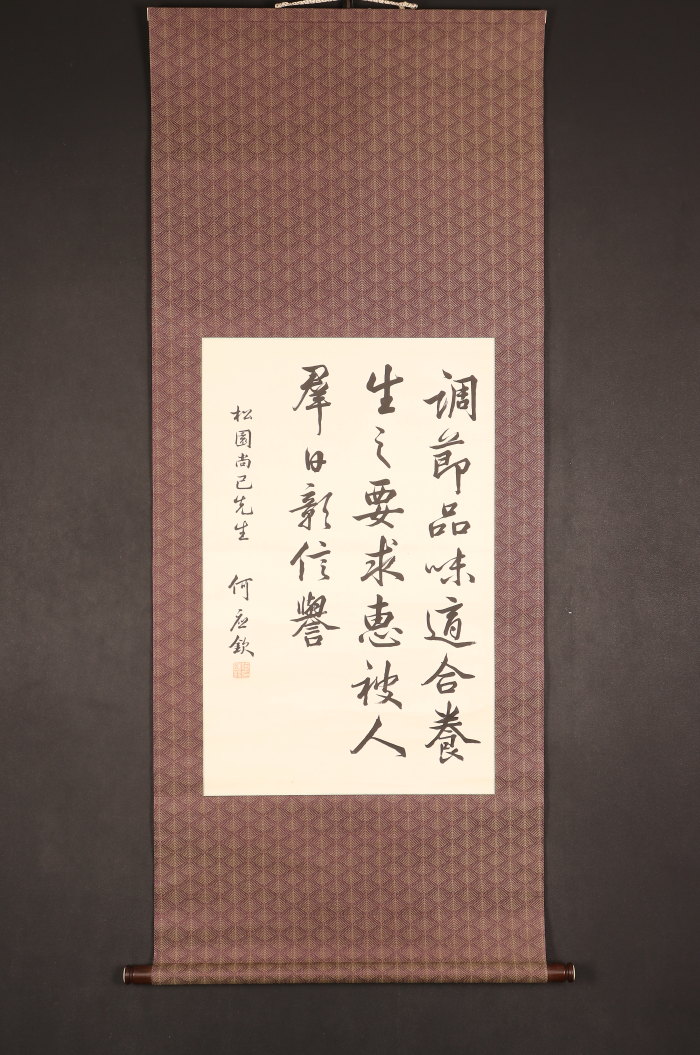 调節品味適合養
生之要求惠被人
羣日彰信譽
松園尚己先生 何應欽